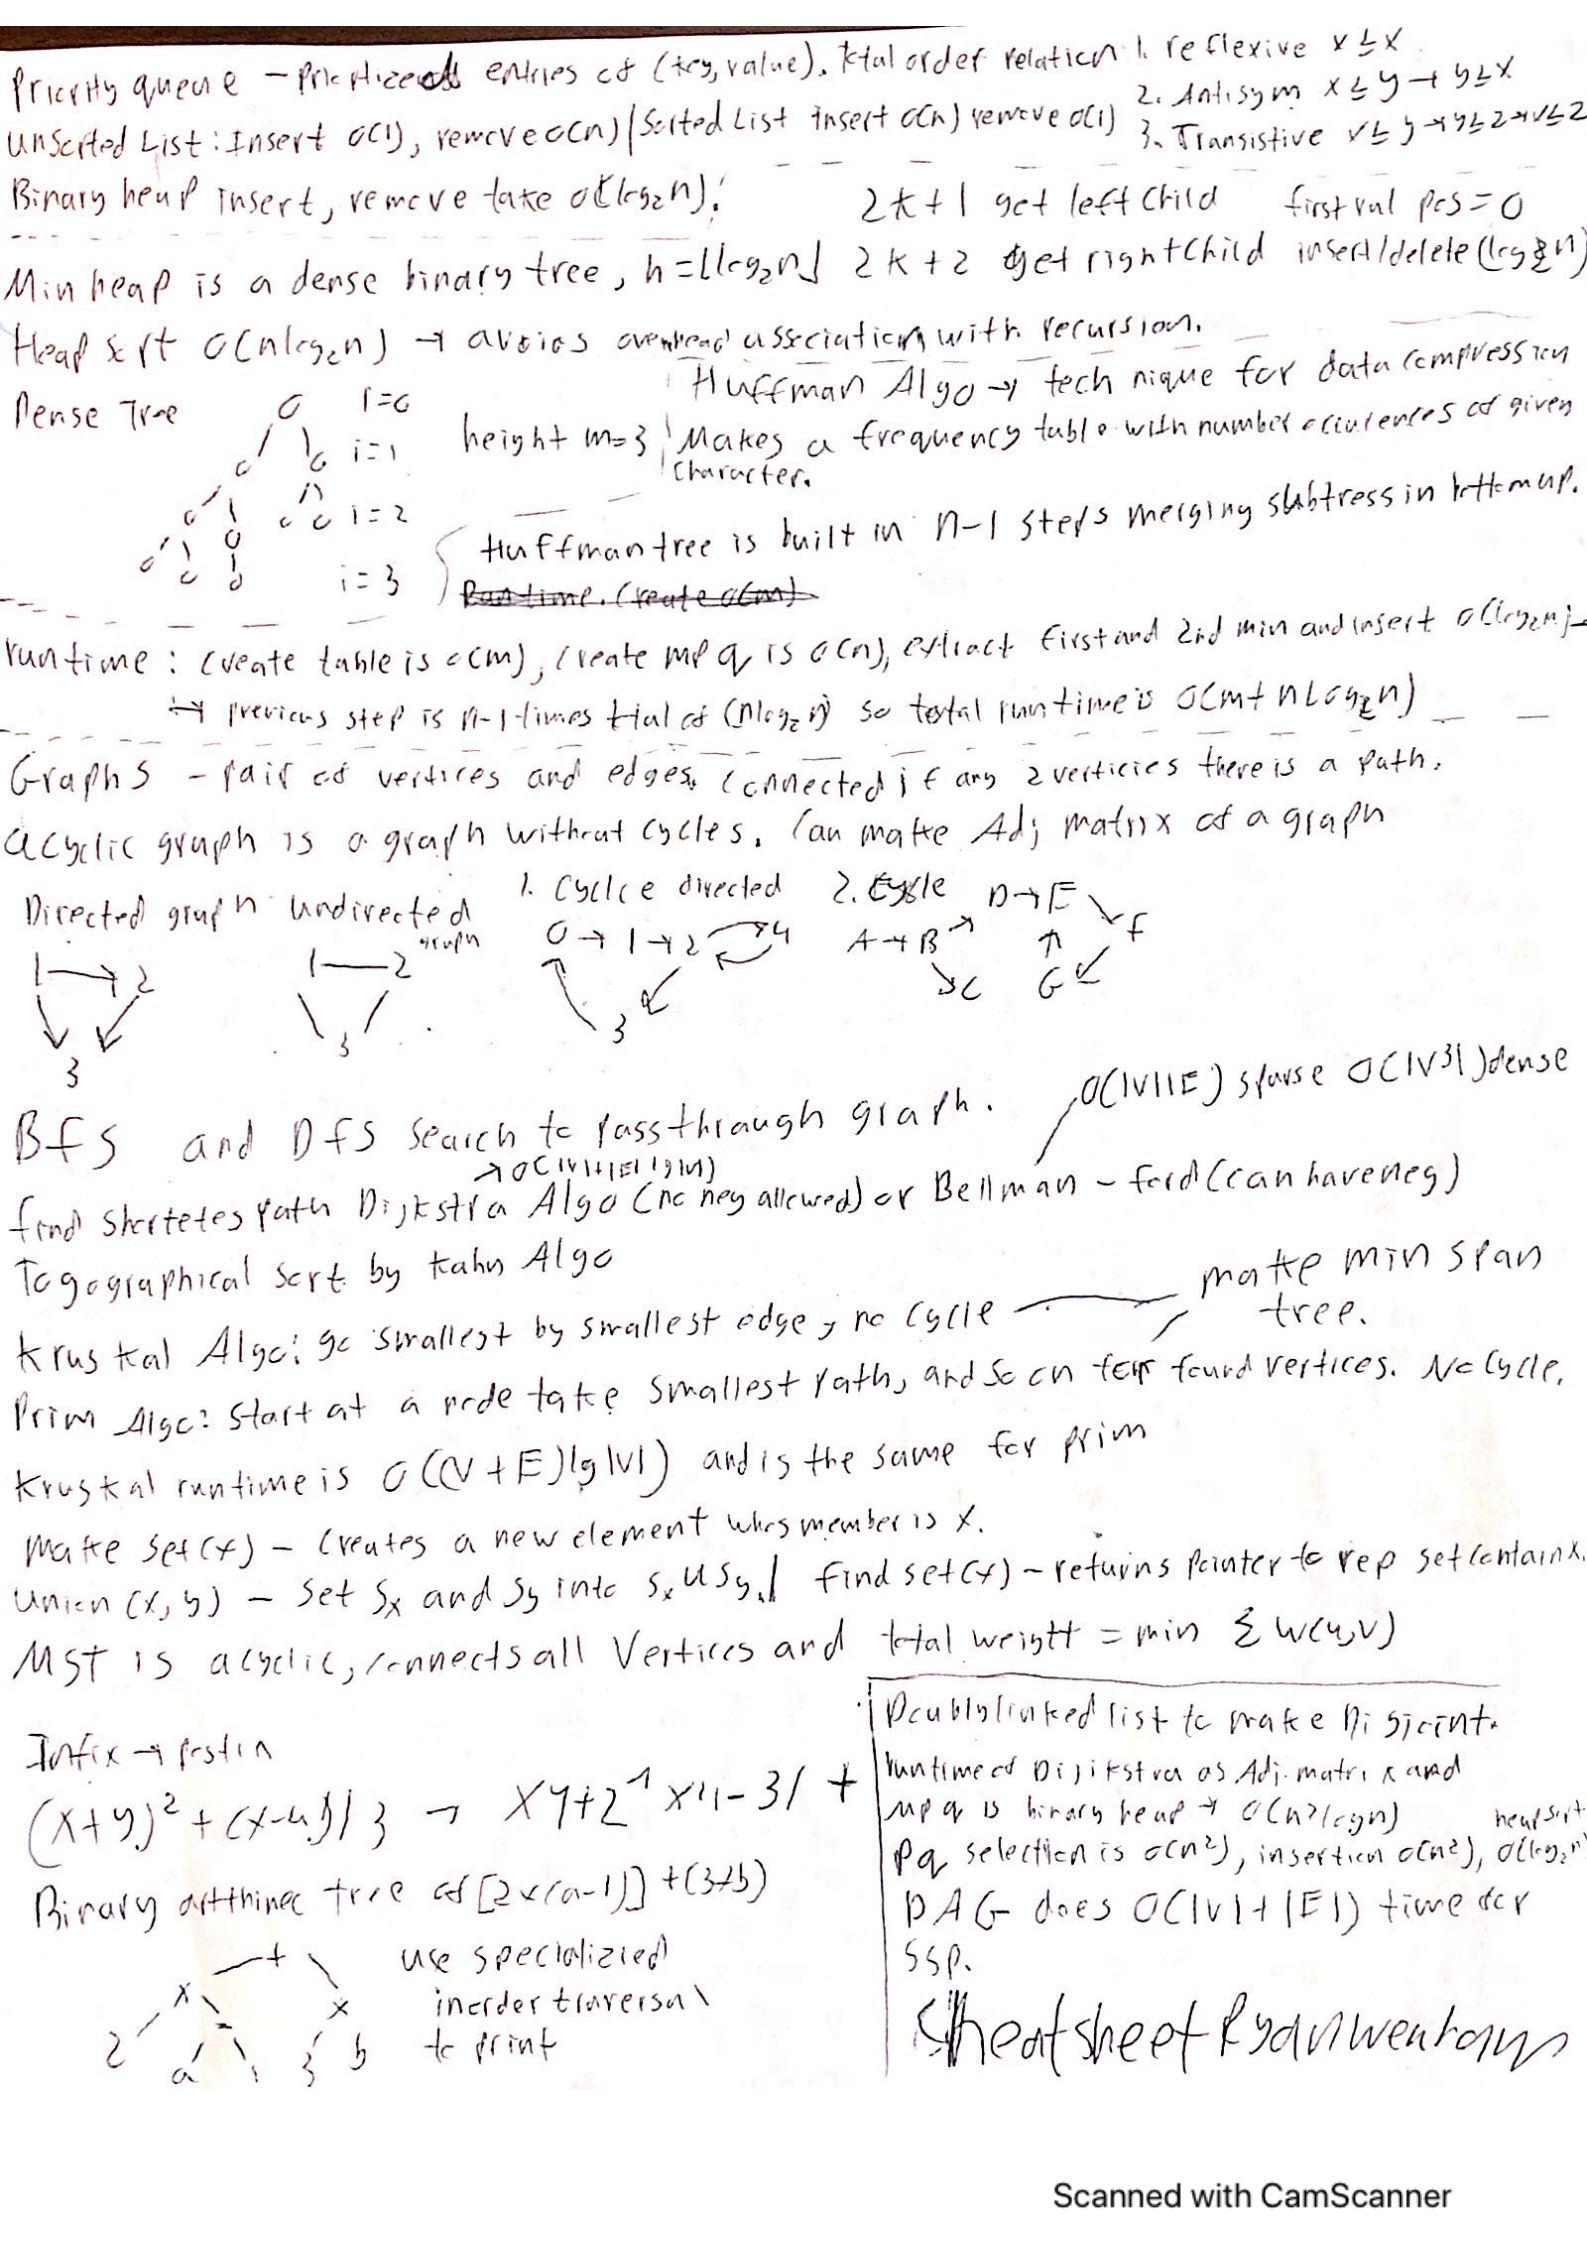 Priority queue – prioritized entries of (key, value). total order relation 1. reflexive x ≤ x
2. Antisym x ≤ y → y ≤ x
Unsorted List: Insert O(1), remove O(n) | Sorted List insert O(n) remove O(1)
3. Transistive x ≤ y → y ≤ z → x ≤ z
Binary heap insert, remove take O(log₂n). 2k+1 get left child first val pos = 0
Min heap is a dense binary tree, h = ⌊log₂n⌋ 2k+2 get right child insert/delete (log₂n)
Heap sort O(nlog₂n) → avoids overhead association with recursion.
Huffman Algo → technique for data compression
Dense Tree i=0
height m=3 Makes a frequency table with number occurences of given
i=1
character.
i=2
Huffman tree is built in n-1 steps merging subtress in bottom up.
i=3
Runtime. Create O(m)
runtime: create table is O(m), create mpq is O(n), extract first and 2nd min and insert O(log₂n)
→ previous step is n-1 times total of (nlog₂n) so total runtime is O(m+nLog₂n)
Graphs – pair of vertices and edges. Connected if any 2 verticies there is a path.
acyclic graph is a graph without cycles. Can make Adj matrix of a graph
Directed graph undirected graph 1. Cyclce directed 2. Cycle
1 → 2 3
1 — 2 3
0 → 1 → 2 4 3
A → B C D → E F G
O(|V||E|) sparse O(|V³|) dense
BFS and DFS search to pass through graph.
→ O(|V|+|E| lg|V|)
find shortetes path Dijkstra Algo (no neg allowed) or Bellman-ford (can have neg)
Togographical sort by kahn Algo
make min span
tree.
Kruskal Algo: go smallest by smallest edge, no cycle
Prim Algo: Start at a node take smallest path, and so on for found vertices. No Cycle.
Kruskal runtime is O((V+E)lg|V|) and is the same for prim
Make set(x) – Creates a new element whos member is x.
Union (x, y) – Set Sx and Sy into Sx U Sy. | find set(x) – returns pointer to rep set contain x.
MST is acyclic, connects all Vertices and total weight = min Σ w(u,v)
Infix →
(x+y)² + (x-4)/3 → xy+2^x4-3/ +
Binary tree of [2x(a-1)] + (3xb)
+
x x
2 - 3 b
a 1
use specializied
inorder traversal
to print
Doubly linked list to make Disjoint.
runtime of Dijikstra as Adj. matrix and
mpq is binary heap → O(n²logn)
heap sort
Pq selection is O(n²), insertion O(n²), O(log₂n)
DAG does O(|V|+|E|) time for
SSP.
Cheatsheet Ryan
Scanned with CamScanner